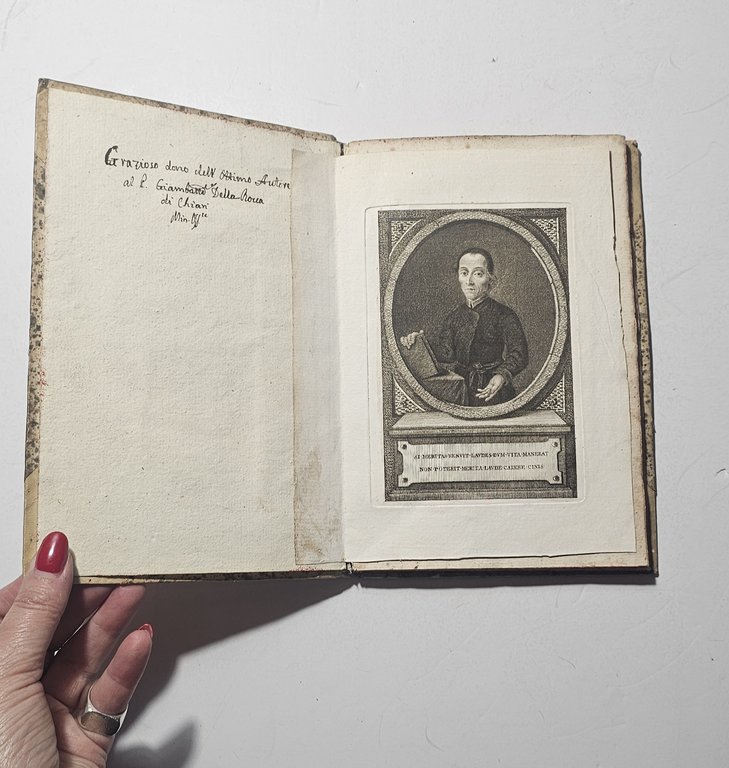 Grazioso dono dell' Ottimo Autore
al P. Giambatt.ª Della Rocca
di Chiari
AI·MERITAS·RENVIT·LAVDES·DVM·VITA·MANEBAT
NON·POTERIT·MERITA·LAVDE·CARERE·CINIS